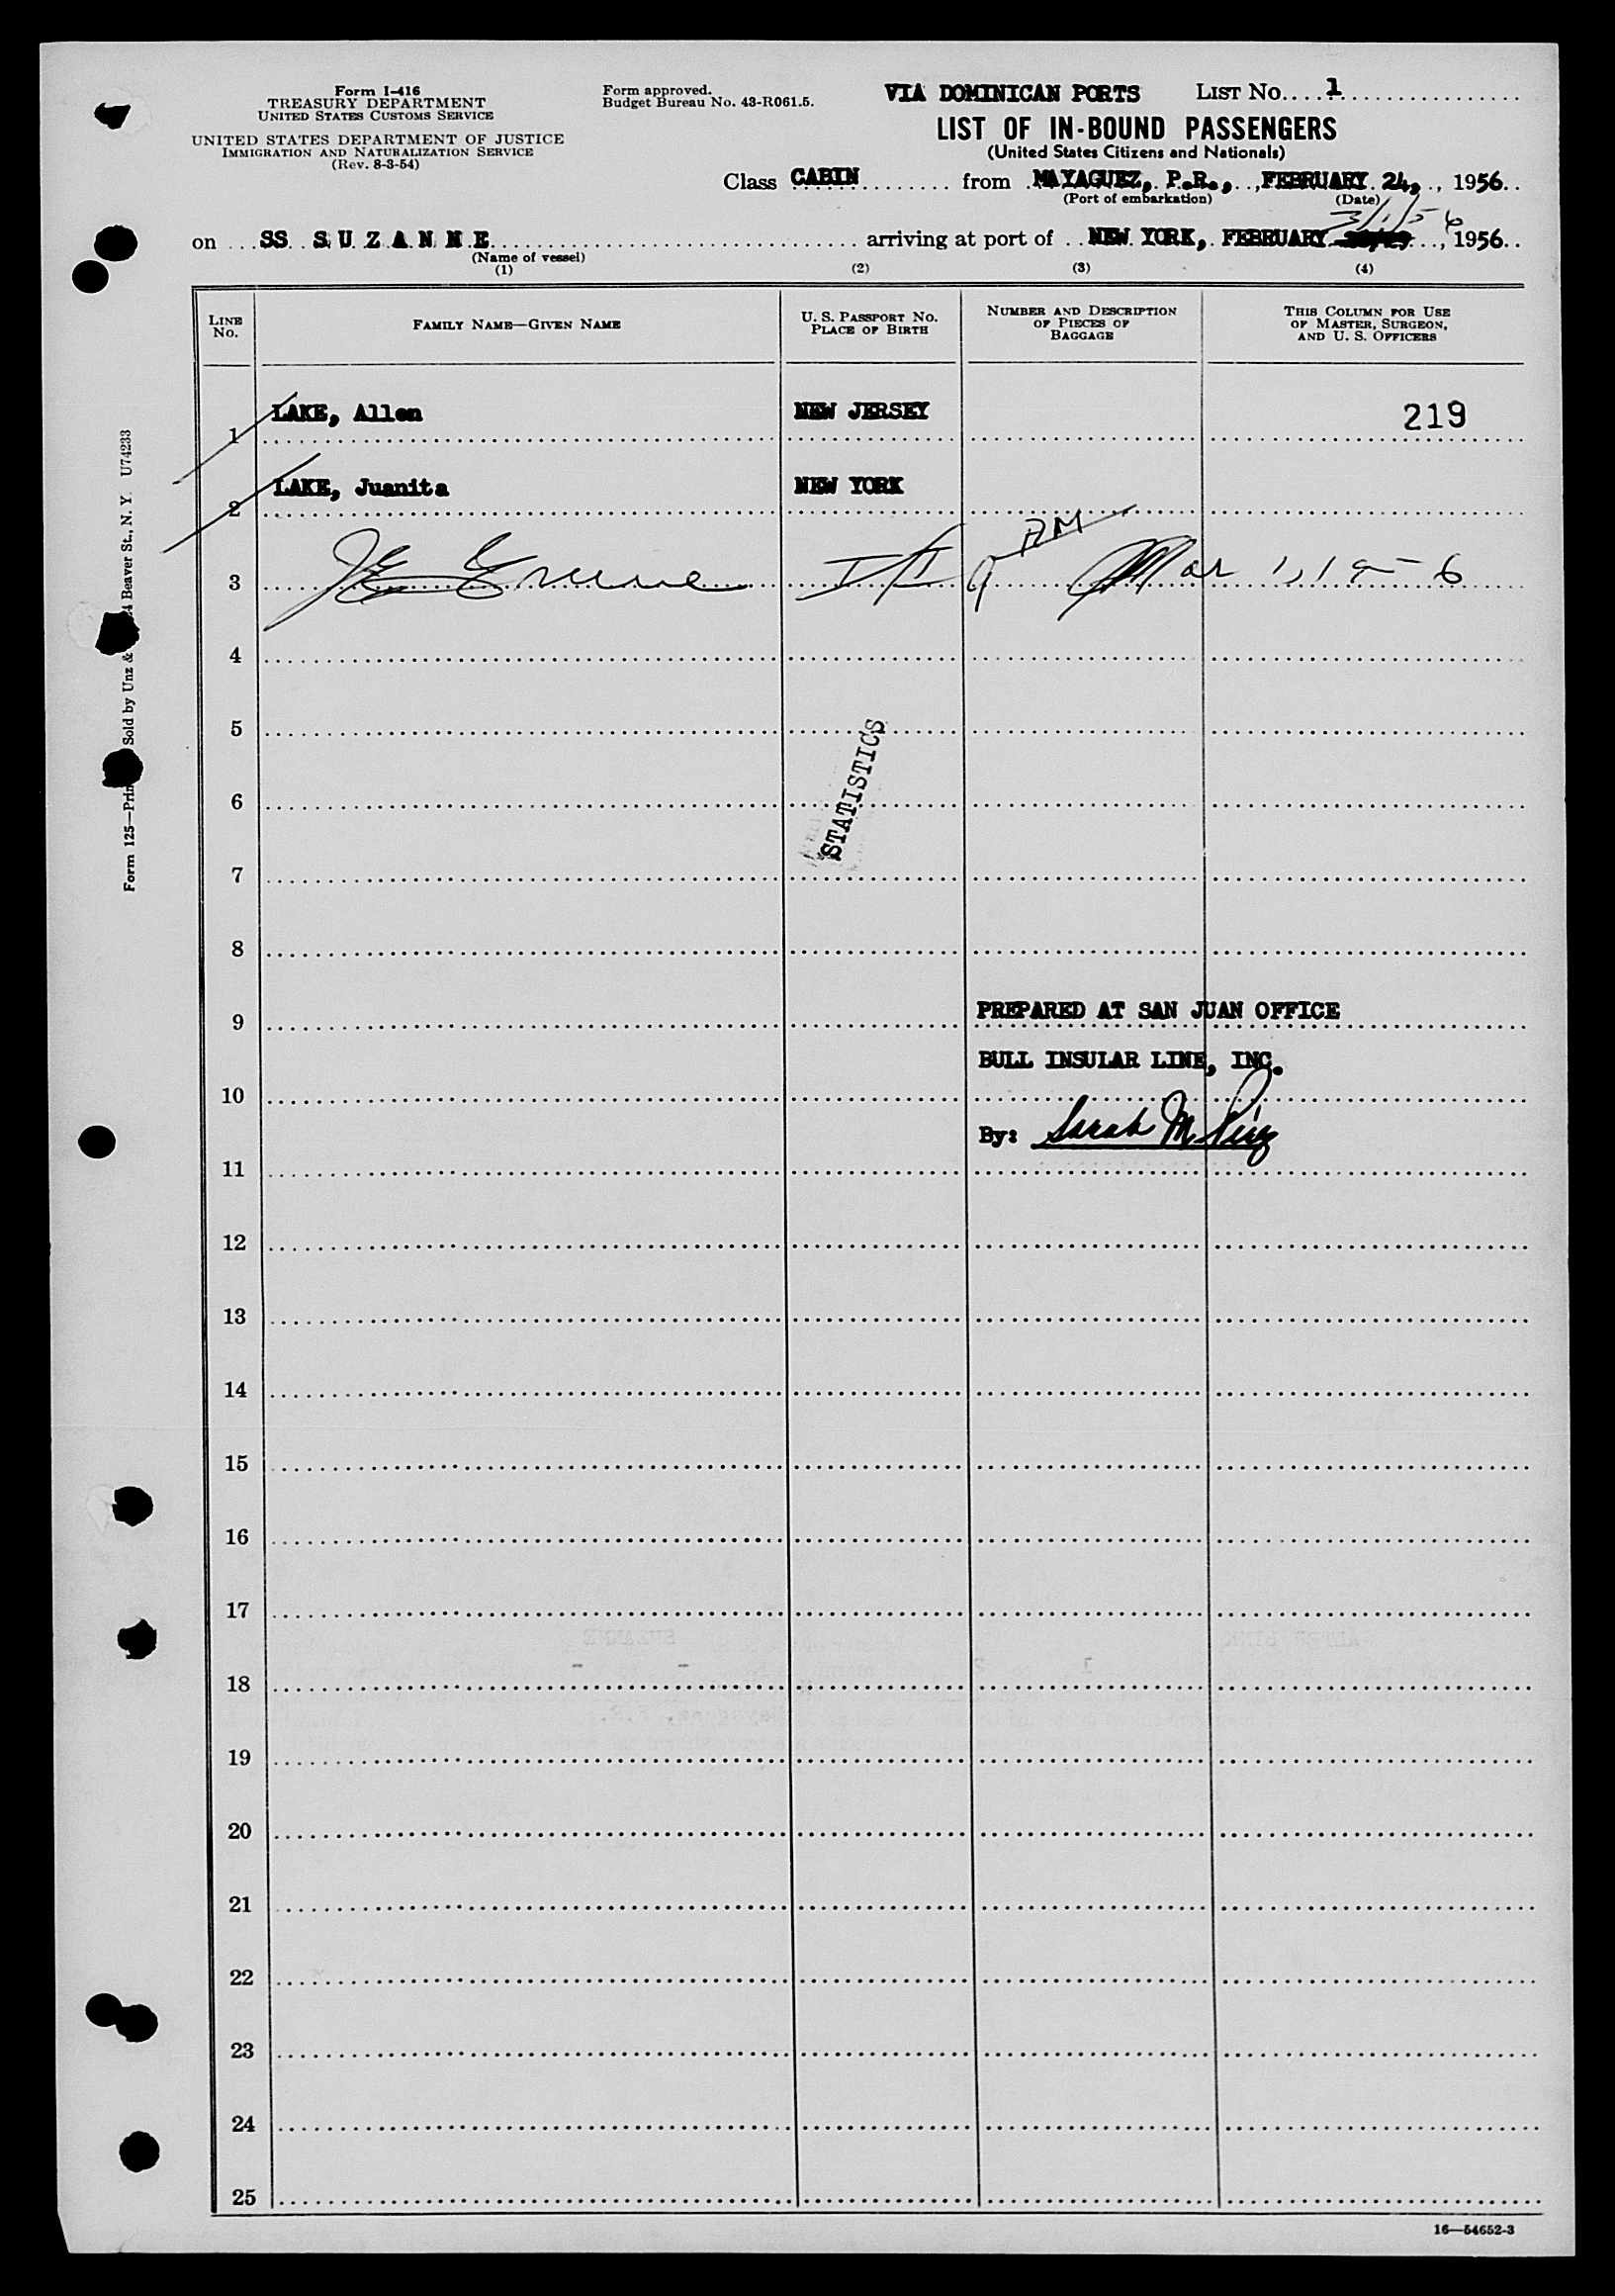 Form I-416
TREASURY DEPARTMENT
UNITED STATES CUSTOMS SERVICE
UNITED STATES DEPARTMENT OF JUSTICE
IMMIGRATION AND NATURALIZATION SERVICE
(Rev. 8-3-54)
Form approved.
Budget Bureau No. 43-R061.5.
VIA DOMINICAN PORTS LIST No. 1
LIST OF IN-BOUND PASSENGERS
(United States Citizens and Nationals)
Class CABIN from MAYAGUEZ, P.R., FEBRUARY 24, 1956
(Port of embarkation) (Date)
3/1/56
on SS SUZANNE arriving at port of NEW YORK, FEBRUARY , 1956
(Name of vessel)
(1) (2) (3) (4)
LINE No. FAMILY NAME—GIVEN NAME U. S. PASSPORT NO. PLACE OF BIRTH NUMBER AND DESCRIPTION OF PIECES OF BAGGAGE THIS COLUMN FOR USE OF MASTER, SURGEON, AND U. S. OFFICERS
1 LAKE, Allen NEW JERSEY 219
2 LAKE, Juanita NEW YORK
3 Greene Mar 1, 1956
4
5
6
STATISTICS
7
8
9 PREPARED AT SAN JUAN OFFICE
BULL INSULAR LINE, INC.
10
By: Sarah M
11
12
13
14
15
16
17
18
19
20
21
22
23
24
25
16—54652-3
Form 125—Prin Sold by Unz & 24 Beaver St., N. Y. U74233